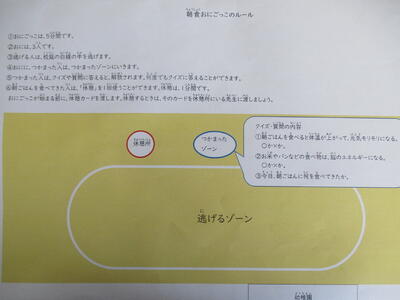 朝食おにごっこのルール
①おにごっこは、5分間です。
②おには、3人です。
③逃げる人は、校庭の白線の中を逃げます。
④おにに、つかまった人は、つかまったゾーンにいきます。
⑤つかまった人は、クイズや質問に答えると、解放されます。何度でもクイズに答えることができます。
⑥朝ごはんを食べてきた人は、「休憩」を1回使うことができます。休憩は、1分間です。
おにごっこが始まる前に、休憩カードを渡します。休憩するときは、そのカードを休憩所にいる先生に渡しましょう。
休憩所
つかまった
ゾーン
クイズ・質問の内容
①朝ごはんを食べると体温が上がって、元気モリモリになる。
○か×か。
②お米やパンなどの食べ物は、脳のエネルギーになる。
○か×か。
③今日、朝ごはんに何を食べてきたか。
逃げるゾーン
幼稚園